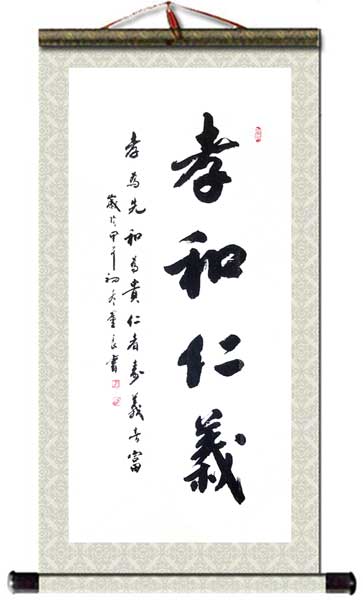 孝和仁義
孝為先和為貴仁者寿義者富
歲次甲午初冬重良書